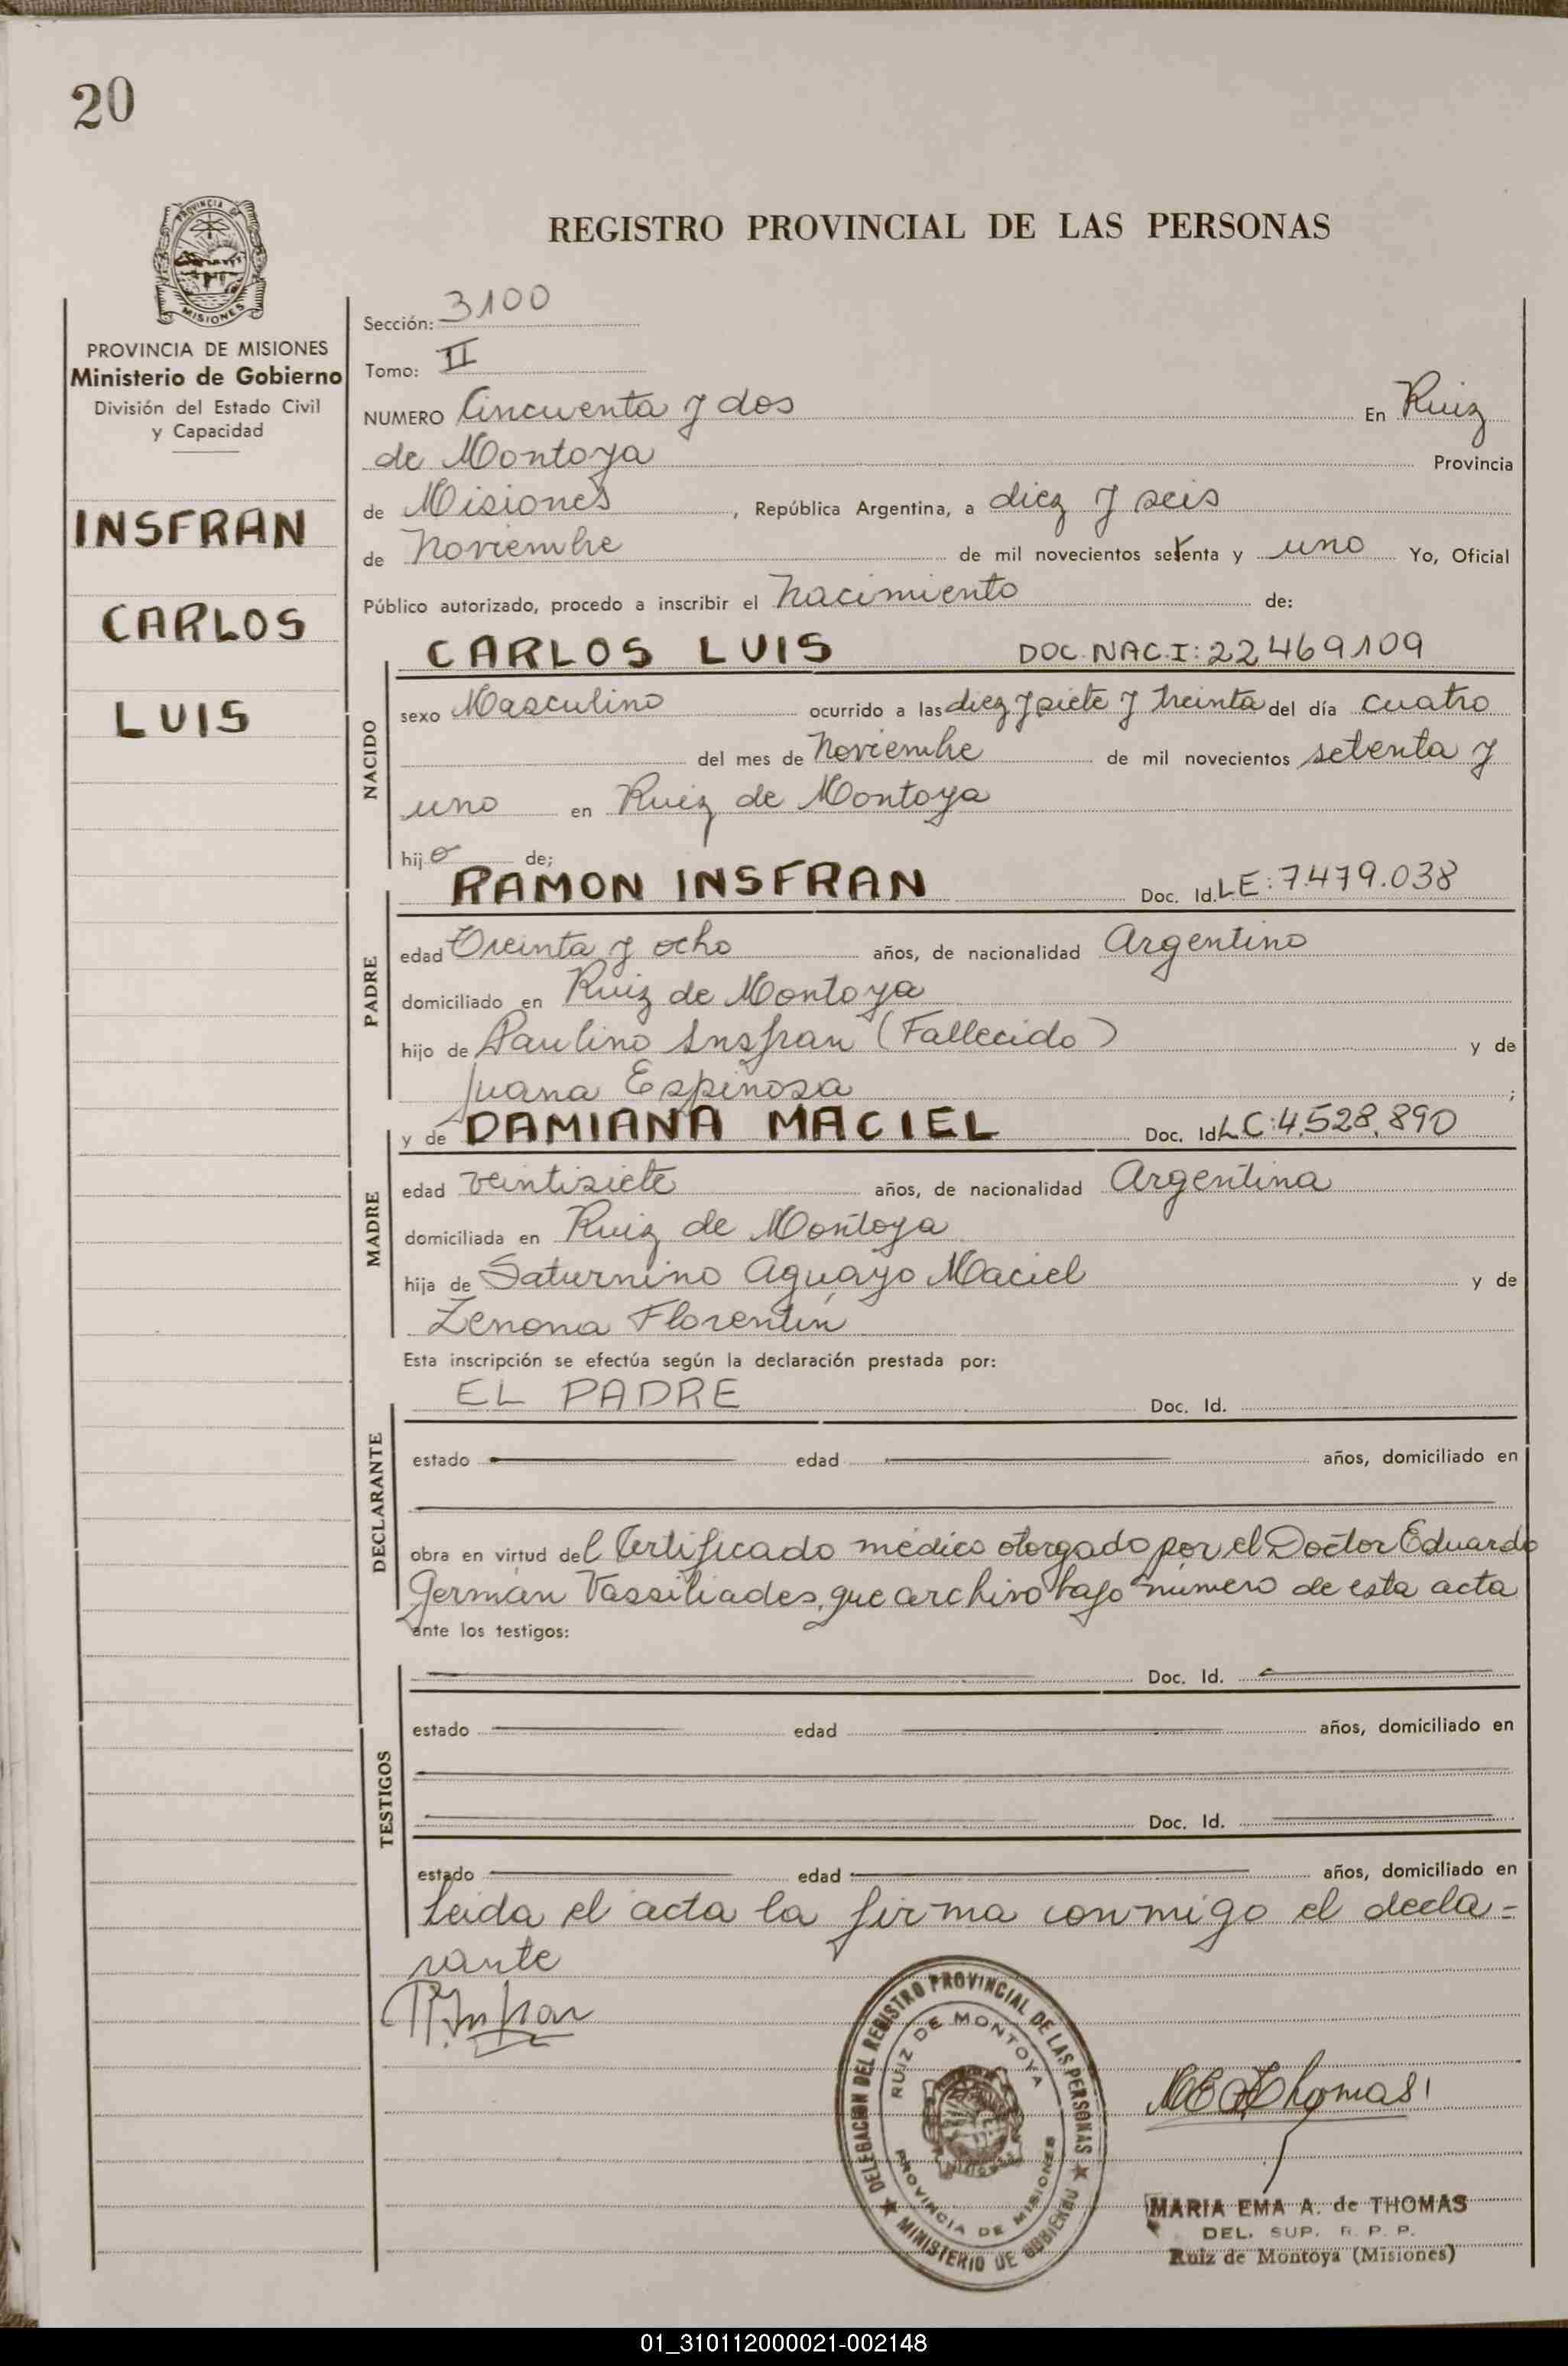 20
REGISTRO PROVINCIAL DE LAS PERSONAS
PROVINCIA DE
MISIONES
PROVINCIA DE MISIONES
Ministerio de Gobierno
División del Estado Civil
y Capacidad
INSFRAN
CARLOS
LUIS
Sección: 3100
Tomo: II
NUMERO Cincuenta y dos En Ruiz
de Montoya Provincia
de Misiones, República Argentina, a diez y seis
de Noviembre de mil novecientos setenta y uno Yo, Oficial
Público autorizado, procedo a inscribir el Nacimiento de:
NACIDO
CARLOS LUIS DOC. NAC. I: 22,469,109
sexo Masculino ocurrido a las diez y siete y treinta del día cuatro
del mes de Noviembre de mil novecientos setenta y
uno en Ruiz de Montoya
hijo de;
PADRE
RAMON INSFRAN Doc. Id. LE: 7.479.038
edad Treinta y ocho años, de nacionalidad Argentino
domiciliado en Ruiz de Montoya
hijo de Paulino Insfran (Fallecido) y de
Juana Espinosa ;
MADRE
y de DAMIANA MACIEL Doc. Id. LC: 4,528,890
edad veintisiete años, de nacionalidad Argentina
domiciliada en Ruiz de Montoya
hija de Saturnino Aguayo Maciel y de
Zenona Florentín
Esta inscripción se efectúa según la declaración prestada por:
DECLARANTE
EL PADRE Doc. Id.
estado edad años, domiciliado en
obra en virtud del Certificado médico otorgado por el Doctor Eduardo
Germán Vassiliades, que archivo bajo número de esta acta
ante los testigos:
TESTIGOS
Doc. Id.
estado edad años, domiciliado en
Doc. Id.
estado edad años, domiciliado en
Leida el acta la firma conmigo el decla=
rante
R. Insfran
DELEGACIÓN DEL REGISTRO PROVINCIAL DE LAS PERSONAS
MINISTERIO DE GOBIERNO
RUIZ DE MONTOYA
PROVINCIA DE MISIONES
Thomas
MARIA EMA A. de THOMAS
DEL. SUP. R. P. P.
Ruiz de Montoya (Misiones)
01_310112000021-002148